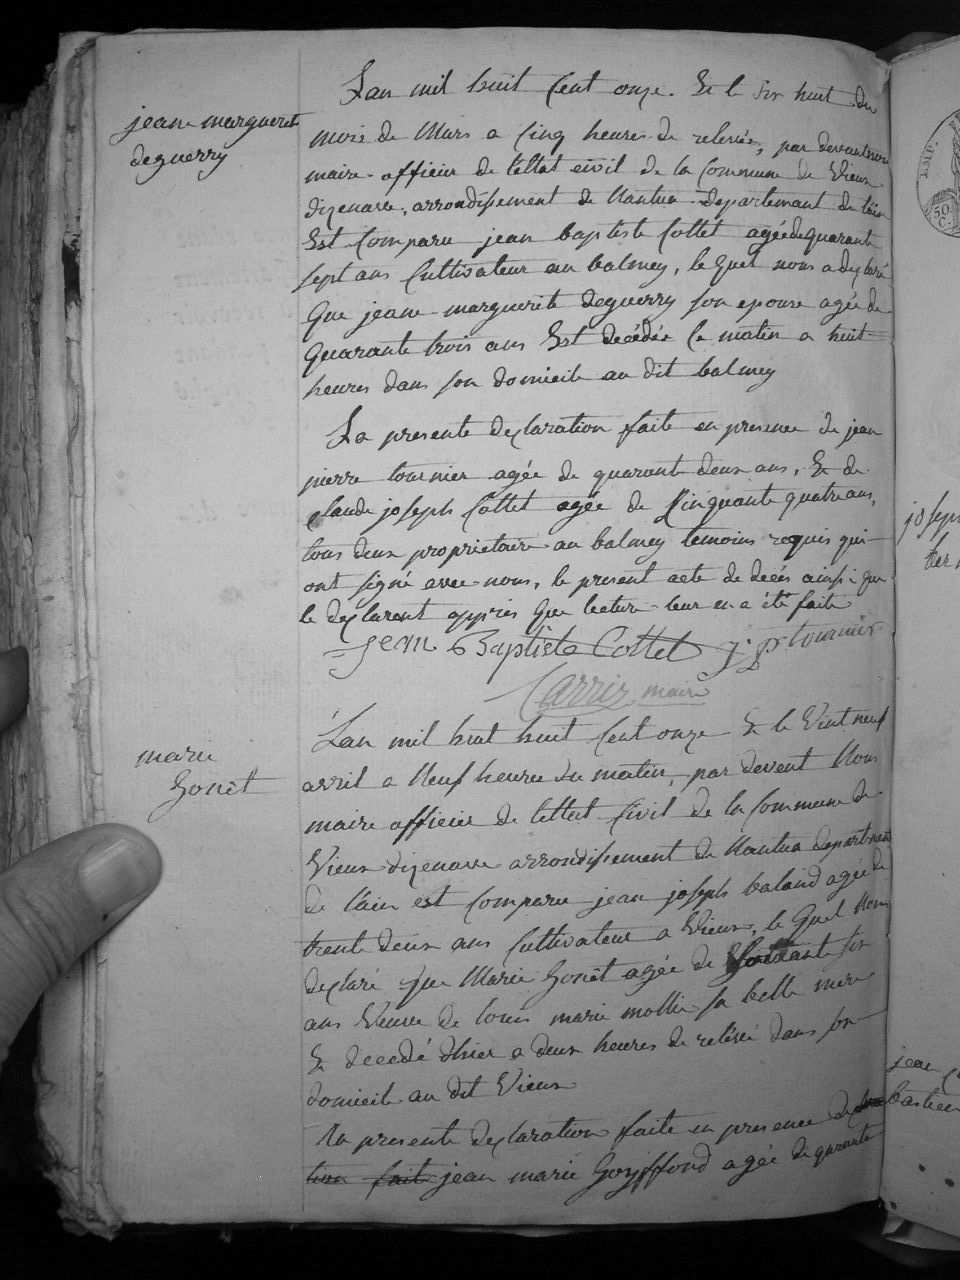 jeanne margueritte
deguerry
Lan mil huit Cent onze. Et le dix huit du
mois de Mars a Cinq heures de relevée, par devant nous
maire officier de l'ettat civil de la Commune de Vieux
dizenave, arrondissement de Nantua departement de l'ain
Est Comparu jean baptiste Collet agée de quarante
sept ans Cultivateur au balmey, le quel nous a declaré
Que jeane marguerite deguerry son epouse agée de
Quarante trois ans Est decédée Ce matin a huit
heures dans son domicile au dit balmey
La presente declaration faite en presence de jean
pierre tournier agée de quarante deux ans, Et de
Claude joseph Collet agée de Cinquante quatre ans,
tous deux proprietaire au balmey temoins requis qui
ont signé avec nous, le present acte de décés ainsi que
le declarent apprès Que lecture leur en a été faite
Jean Baptiste Collet j. p. tournier
Carrier maire
marie
Gonet
Lan mil huit huit Cent onze Et le Vint neuf
avril a Neuf heures du matin, par devent Nous
maire officier de l'ettat Civil de la Commune de
Vieux dizenave arrondissement de Nantua departement
de l'ain est Comparu jean joseph baland agée de
trente deux ans Cultivateur a Vieux, le Quel Nous
declaré que Marie Gonet agée de Soixante six
ans Veuve de louis marie mollie sa belle mere
Et decedé d'hier a deux heures de relevée dans son
domicile au dit Vieux
la presente declaration faite en presence de
tion faite jean marie Goyffond agée de quarante
josep
jean
bastien